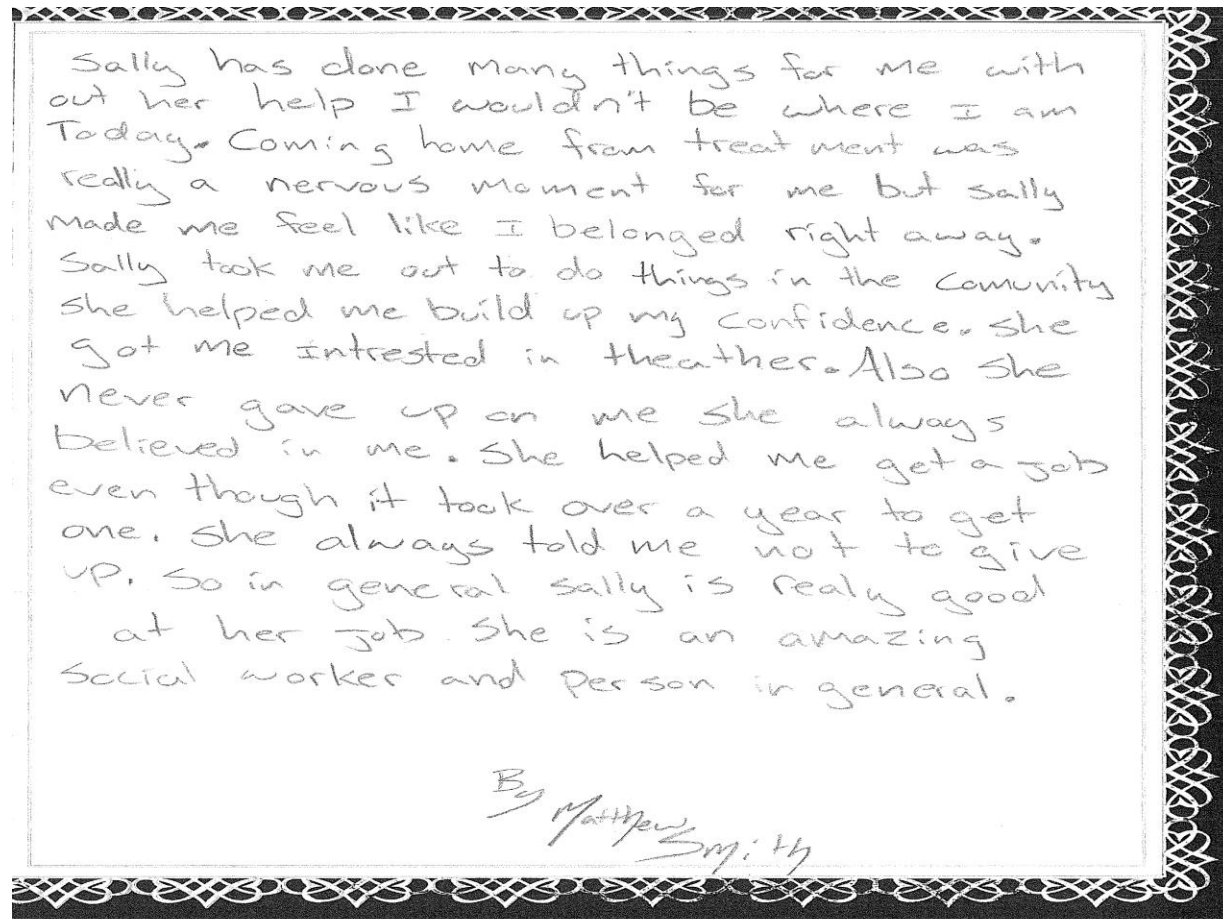 Sally has done many things for me with
out her help I wouldn't be where I am
Today. Coming home from treat ment was
really a nervous moment for me but sally
made me feel like I belonged right away.
Sally took me out to do things in the comunity
she helped me build up my confidence. she
got me intrested in theather. Also she
never gave up on me she always
believed in me. She helped me get a job
even though it took over a year to get
one. She always told me not to give
up. So in general sally is realy good
at her job she is an amazing
social worker and person in general.
By Matthew
Smith